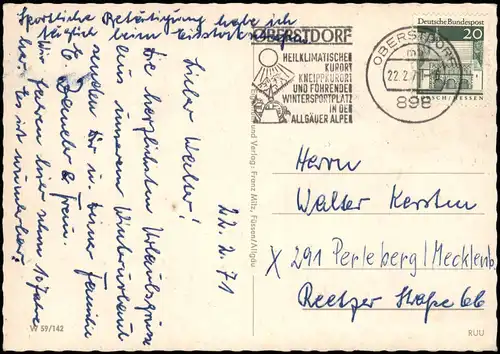 Sportliche Betätigung habe ich
täglich beim Eisstockschießen.
22.2.71
Lieber Walter!
Die herzlichsten Urlaubsgrüße
aus unserem Winterurlaub
senden Dir u. Deiner Familie
E. u. Frau.
Wir fahren hier schon 10 Jahre
her. Es ist wunderbar!
W 59/142
und Verlag: Franz Milz, Füssen/Allgäu
OBERSTDORF
HEILKLIMATISCHER
KURORT
KNEIPPKURORT
UND FÜHRENDER
WINTERSPORTPLATZ
IN DEN
ALLGÄUER ALPEN
OBERSTDORF
22.2.7
898
Deutsche Bundespost
20
LORSCH/HESSEN
Herrn
Walter Kersten
X 291 Perleberg/Mecklenb.
Reetzer Straße 66
RUU